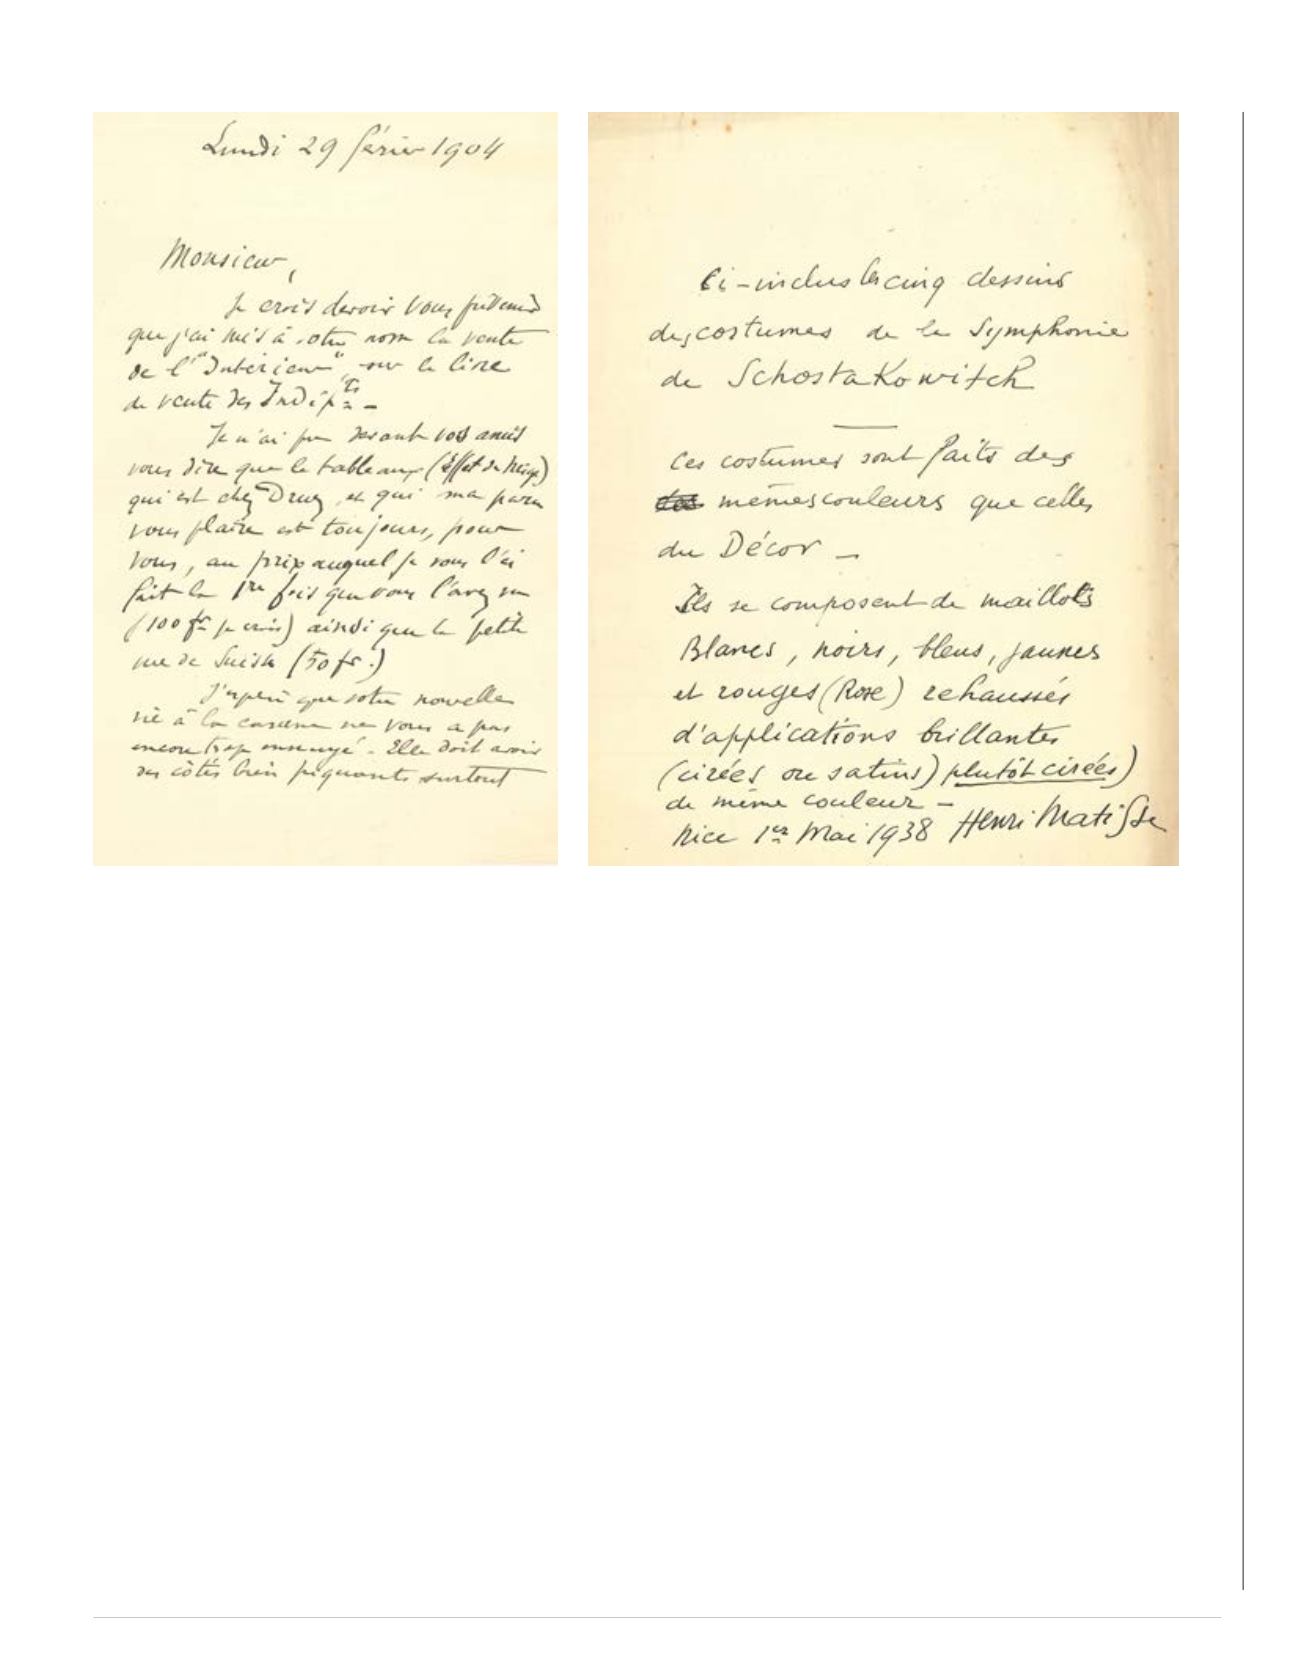 Lundi 29 février 1904
Monsieur,
Je crois devoir vous prévenir
que j'ai mis à votre nom la vente
de l'"Intérieur" sur le livre
de vente des Indépts –
Je n'ai pu devant vos amis
vous dire que le tableau (effet de neige)
qui est chez Druez et qui m'a paru
vous plaire est toujours, pour
vous, au prix auquel je vous l'ai
fait la 1re fois que vous l'avez vu
(100 frs je crois) ainsi que la petite
vue de Suisse (50 frs.)
J'espère que votre nouvelle
vie à la caserne ne vous a pas
encore trop ennuyé – Elle doit avoir
des côtés bien piquants surtout
Ci-inclus les cinq dessins
des costumes de la Symphonie
de Schostakowitch
Ces costumes sont faits des
mêmes couleurs que celles
du Décor –
Ils se composent de maillots
Blancs, noirs, bleus, jaunes
et rouges (Rose) rehaussés
d'applications brillantes
(cirées ou satins) plutôt cirées)
de même couleur –
Nice 1er Mai 1938 Henri Matisse